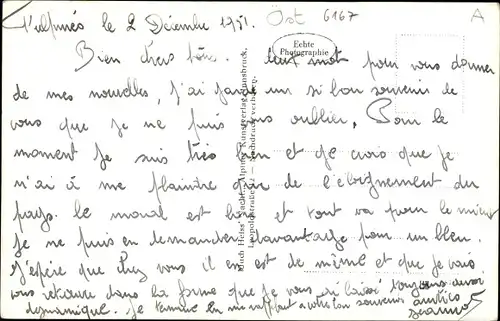 le 2 Décembre 1951. Öst 6167 A
Echte
Photographie
Bien chers tous. tout mot pour vous donner
de mes nouvelles, j'ai gardé un si bon souvenir de
vous que je ne puis vous oublier, Pour le
moment je suis très bien et je crois que je
n'ai à me plaindre que de l'éloignement du
pays. le moral est bon et tout va pour le mieux
je ne puis en demander davantage pour un bleu.
J'espère que chez vous il en est de même et que je vais
vous retrouver dans la forme que je vous ai laissé toujours aussi
dynamique. je termine en me rappelant à votre bon souvenir amitiés
Jeannot
Much Heiss Nachf., Alpiner Kunstverlag, Innsbruck,
Nachdruck verboten.